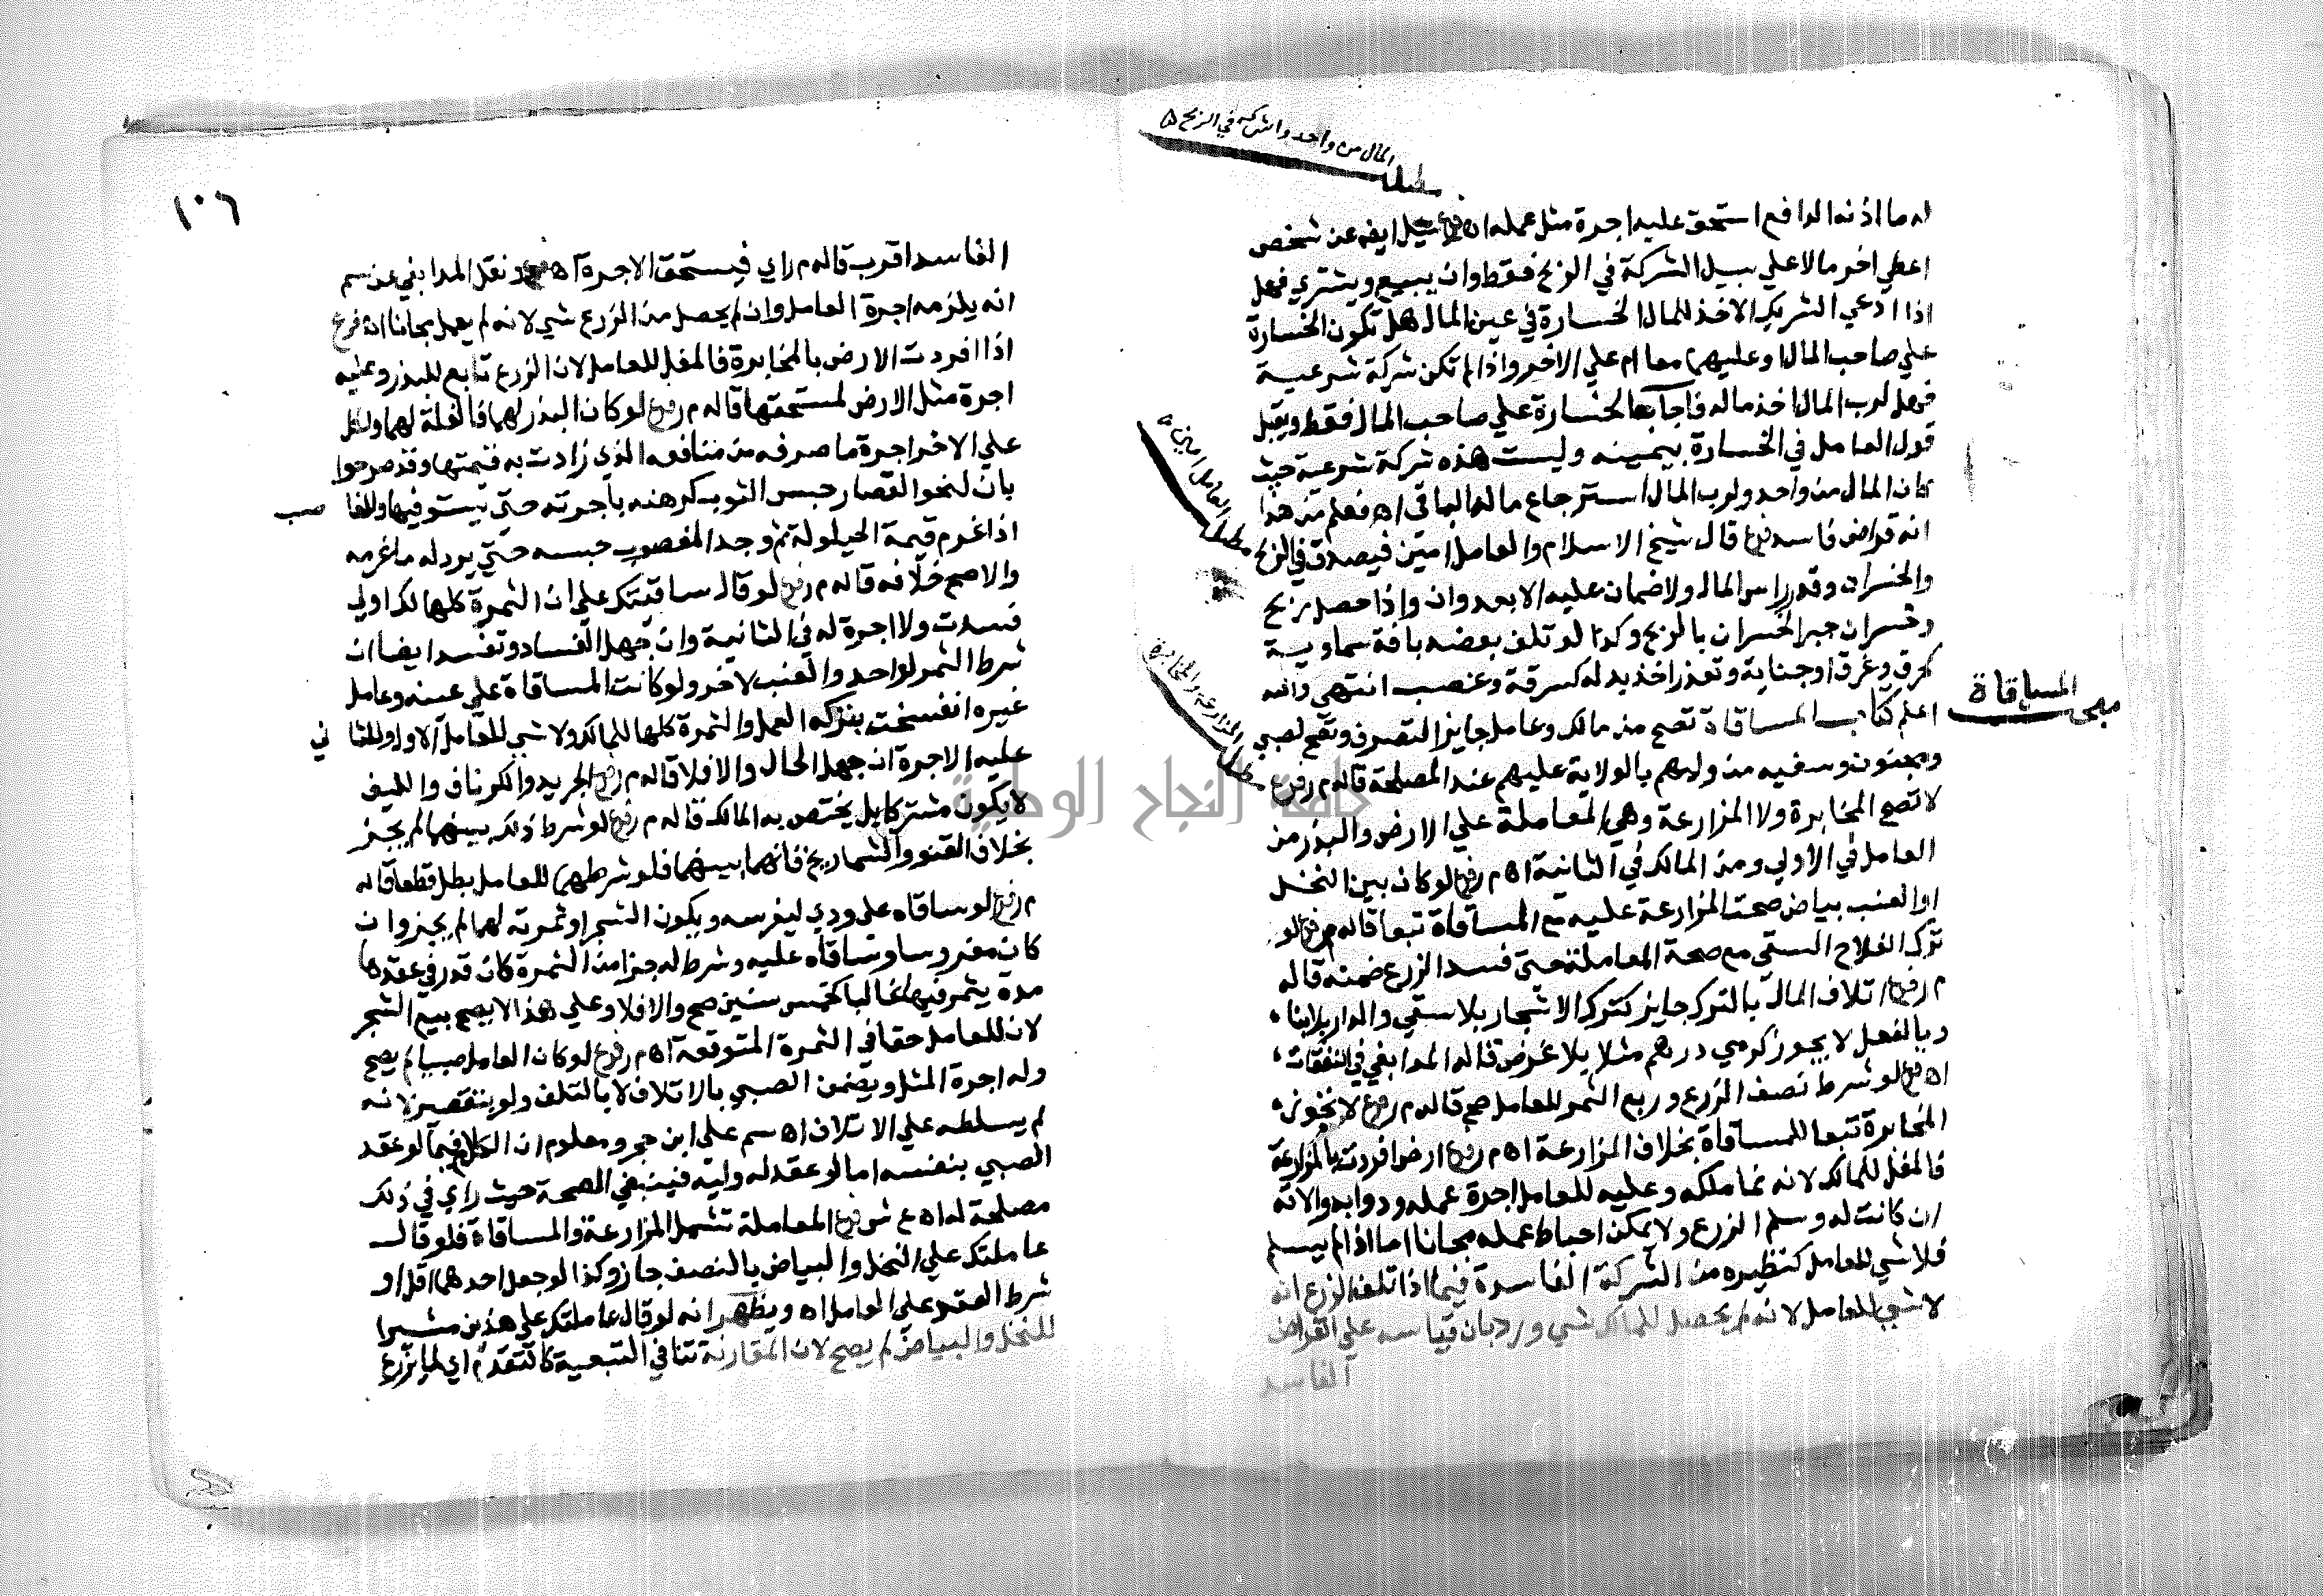 المال من واحد واشركه في الربح
مطلب
له ما اذنه الدافع استحق عليه اجرة مثل عمله اه فرع سيل ايضه عن شخص
اعطي اخر مالا علي سبيل الشركة في الربح فقط وان يبيع ويشتري فهل
اذا ادعي الشريك الاخذ للمال الخسارة في عين المال هل تكون الخسارة
علي صاحب المال او عليهما معا ام علي الاخر واذا لم تكن شركة شرعية
فهل لرب المال اخذ ماله فاجاب الخسارة علي صاحب المال فقط ويقبل
قول العامل في الخسارة بيمينه وليست هذه شركة شرعية حيث
كان المال من واحد ولرب المال استرجاع ماله الباقي اه فعلم من هذا
انه قراض فاسد فرع قال شيخ الاسلام والعامل امين فيصدق في الربح
والخسران وقدر راس المال ولا ضمان عليه الا بعدوان واذا حصل ربح
وخسران جبر الخسران بالربح وكذا لو تلف بعضه بافة سماوية
كحرق وغرق او جناية وتعذر اخذ بدله كسرقة وغصب انتهي والله
اعلم كتاب المساقاة تصح من مالك وعامل جايز التصرف وتصح لصبي
ومجنون وسفيه من وليهم بالولاية عليهم عند المصلحة قاله م ر فرع
لا تصح المخابرة ولا المزارعة وهي المعاملة علي الارض والبذر من
العامل في الاولي ومن المالك في الثانية اه م ر فرع لو كان بين النخل
او العنب بياض صحت المزارعة عليه مع المساقاة تبعا قاله م ر فرع لو
ترك الفلاح السقي مع صحة المعاملة حتي فسد الزرع ضمنه قاله
م ر فرع اتلاف المال بالترك جايز كترك الاشجار بلا سقي والدار بلا بنا
وبالفعل لا يجوز كرمي درهم مثلا بلا غرض قاله المدابغي في النفقات
اه فرع لو شرط نصف الزرع وربع الثمر للعامل صح قاله م ر فرع لا تجوز
المخابرة تبعا للمساقاة بخلاف المزارعة اه م ر فرع ارض افردت بالمزارعة
فالمغل للمالك لانه نما ملكه وعليه للعامل اجرة عمله ودوابه والاته
ان كانت له وسلم الزرع ولا يمكن احباط عمله مجانا اما اذا لم يسلم
فلا شي للعامل كنظيره من الشركة الفاسدة فيما اذا تلف الزرع انه
لا شي للعامل لانه لم يحصل للمالك شي ورد بان قياسه علي القراض
الفاسد
مطلب العامل امين
مطلب المزارعة والمخابرة
مبحث المساقاة
١٠٦
الفاسد اقرب قاله م راي فيستحق الاجرة اه ونقل المدابغي عن سم
انه يلزمه اجرة العامل وان لم يحصل من الزرع شي لانه لم يعمل مجانا اه فرع
اذا افردت الارض بالمخابرة فالمغل للعامل لان الزرع تابع للبذر وعليه
اجرة مثل الارض لمستحقها قاله م ر فرع لو كان البذر لهما فالغلة لهما ولكل
علي الاخر اجرة ما صرفه من منافعه الذي زادت به قيمتها وقد صرحوا
بان لنحو القصار حبس الثوب كرهنه باجرته حتي يستوفيها وللغا صب
اذا غرم قيمة الحيلولة ثم وجد المغصوب حبسه حتي يرد له ما غرمه
والاصح خلافه قاله م ر فرع لو قال ساقيتك علي ان الثمرة كلها لك اولي
فسدت ولا اجرة له في الثانية وان جهل الفساد وتفسد ايضا ان
شرط الثمر لواحد والعنب لاخر ولو كانت المساقاة علي عينه وعامل
غيره انفسخت بتركه العمل والثمرة كلها للمالك ولا شي للعامل الاول وللثا ني
عليه الاجرة ان جهل الحال والا فلا قاله م ر فرع الجريد والكرناف والليف
لا يكون مشتركا بل يختص به المالك قاله م ر فرع لو شرط ذلك بينهما لم يجز
بخلاف القنو والشماريخ فانهما بينهما فلو شرطهما للعامل بطل قطعا قاله
م ر فرع لو ساقاه علي ودي ليغرسه ويكون الشجر او ثمرته لهما لم يجز وان
كان مغروسا وساقاه عليه وشرط له جزا من الثمرة كان قدر في عقدها
مدة يثمر فيها غالبا كخمس سنين صح والا فلا وعلي هذا لا يصح بيع الشجر
لان للعامل حقا في الثمرة المتوقعة اه م ر فرع لو كان العامل صبيا لم يصح
وله اجرة المثل ويضمن الصبي بالاتلاف لا بالتلف ولو بتقصير لانه
لم يسلطه علي الاتلاف اه سم علي ابن حجر ومعلوم ان الكلام فيما لو عقد
الصبي بنفسه اما لو عقد له وليه فينبغي الصحة حيث راي في ذلك
مصلحة له اه ع ش فرع المعاملة تشمل المزارعة والمساقاة فلو قال
عاملتك علي النخل والبياض بالنصف جاز وكذا لو جعل احدهما اقل او
شرط العقد علي العامل اه ويظهر انه لو قال عاملتك علي هذين مشيرا
للنخل والبياض لم يصح لان المقارنة تنافي التبعية كالتقدم اي لما يزرع
جامعة النجاح الوطنية